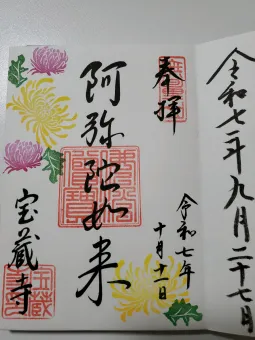 令和七年九月二十七日
奉拝
令和七年
十月十一日
阿弥陀如来
宝蔵寺